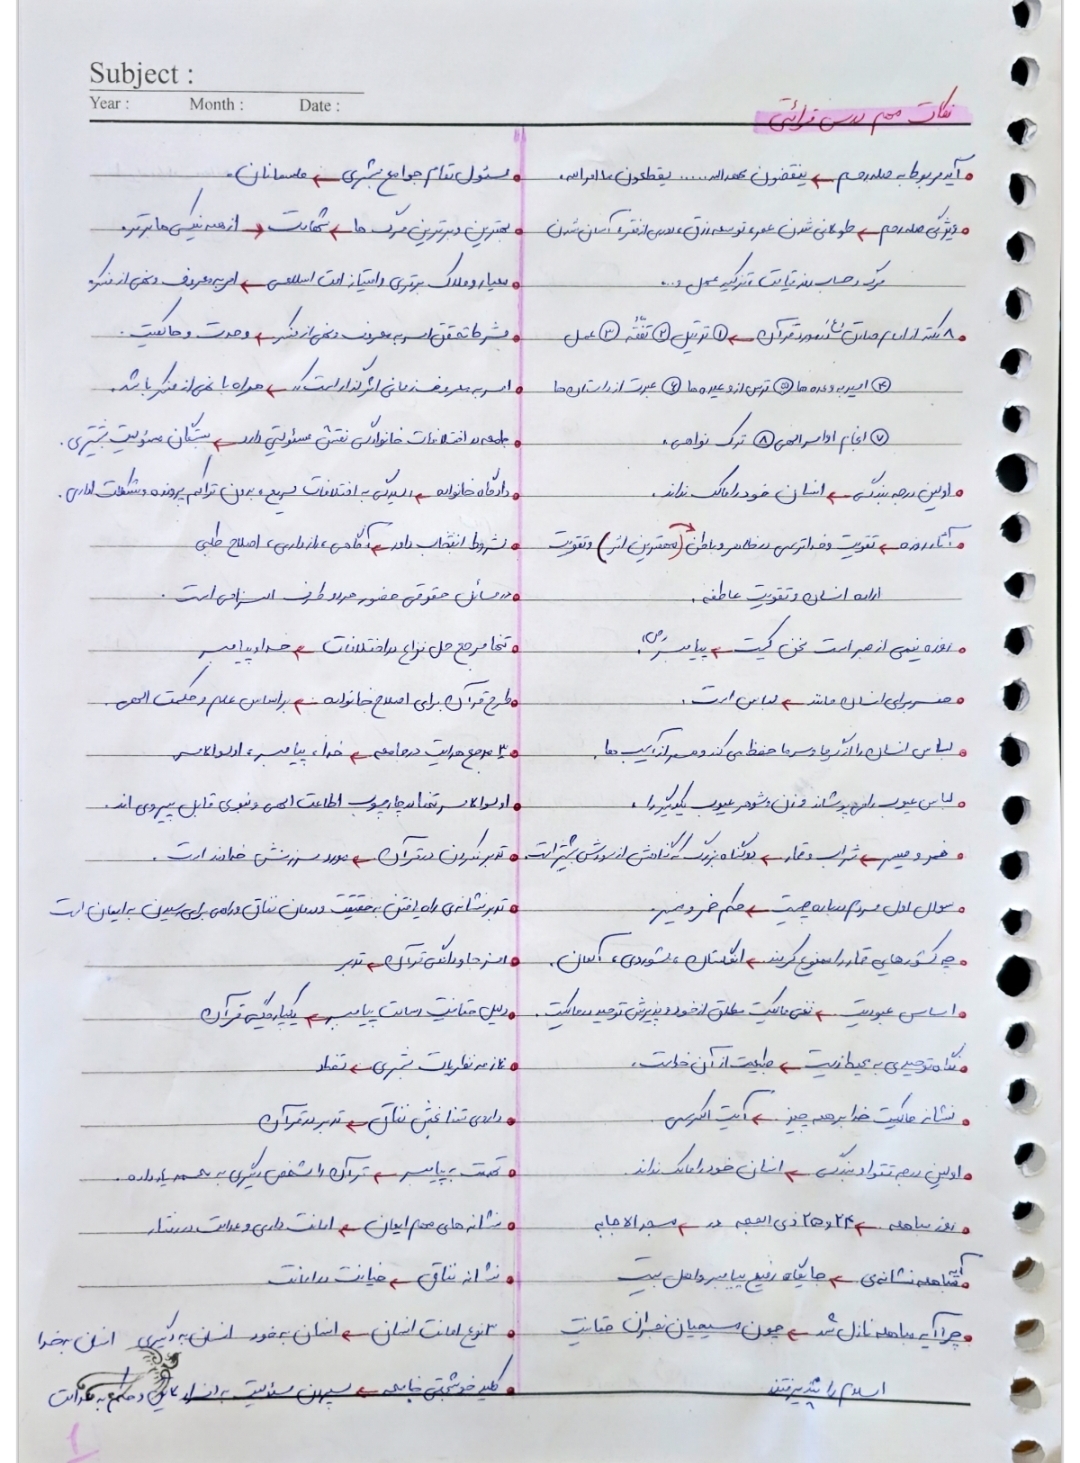 Subject :
Year : Month : Date :
نکات مهم درس قرائتی
آیه مربوط به صله رحم ← ینقضون عهدالله ..... یقطعون ما امرالله.
ویژگی صله رحم ← طولانی شدن عمر، توسعه رزق، دوری از فقر، آسان شدن
مرگ و حساب روز قیامت، تزکیه عمل و...
۸ نکته از امام صادق در مورد قرآن ← ① ترتیل ② تفقّه ③ عمل
④ امید به وعده ها ⑤ ترس از وعیدها ⑥ عبرت از داستان ها
⑦ انجام اوامر الهی ⑧ ترک نواهی.
اولین درجه بندگی ← انسان خود را مالک نداند.
آثار روزه ← تقویت و خداترسی در ظاهر و باطن (مهمترین اثر) و تقویت
اراده انسان و تقویت عاطفه.
روزه نیمی از صبر است سخن کیست ← پیامبر (ص).
همسر برای انسان مانند ← لباس است.
لباس انسان را از گرما و سرما حفظ می کند و همسر از آسیب ها.
لباس عیوب را می پوشاند و زن و شوهر عیوب یکدیگر را.
خمر و میسر ← شراب و قمار ← دو گناه بزرگ که گناهش از سودش بیشتر است.
سوال اول مردم درباره چیست ← حکم خمر و میسر.
چه کشورهایی قمار را ممنوع کردند ← انگلستان، شوروی، آلمان.
اساس عبودیت ← نفی مالکیت مطلق از خود و پذیرش توحید در مالکیت.
نگاه توحیدی به محیط زیست ← طبیعت از آن خداست.
نشانه مالکیت خدا بر همه چیز ← آیت الکرسی
اولین درجه تقوا و بندگی ← انسان خود را مالک نداند.
روز مباهله ← ۲۴ و ۲۵ ذی الحجه در ← مسجد الاجابه
آیه مباهله نشانه ی ← جایگاه رفیع پیامبر و اهل بیت
چرا آیه مباهله نازل شد ← چون مسیحیان نجران حقانیت
اسلام را نپذیرفتند
مسئول تمام جوامع بشری ← مسلمانان.
بهترین و برترین مرگ ها ← شهادت ← از همه نیکی ها برتره.
معیار و ملاک برتری و امتیاز امت اسلامی ← امر به معروف و نهی از منکر
شرط تحقق امر به معروف و نهی از منکر ← وحدت و حاکمیت.
امر به معروف زمانی اثرگذار است که ← همراه با نهی از منکر باشد.
جامعه در اختلافات خانوادگی نقش مسئولیتی دارد ← بستگان مسئولیت بیشتری.
دادگاه خانواده ← رسیدگی به اختلافات سریع، بدون تراکم پرونده و مشکلات اداری.
شروط انتخاب داور ← آگاهی، رازداری، اصلاح طلبی
در مسائل حقوقی حضور هر دو طرف الزامی است.
تنها مرجع حل نزاع در اختلافات ← خدا و پیامبر
طرح قرآن برای اصلاح خانواده ← بر اساس علم و حکمت الهی.
۳ مرجع هدایت در جامعه ← خدا، پیامبر، اولوالامر
اولوالامر تنها در چارچوب اطاعت الهی و نبوی قابل پیروی اند.
تدبر نکردن در قرآن ← مورد سرزنش خداوند است.
تدبر نشانه ی راه یافتن به حقیقت و درمان نفاق و راهی برای رسیدن به ایمان است
رمز جاودانگی قرآن ← تدبر
دلیل حقانیت رسالت پیامبر ← یکپارچگی قرآن
لازمه نظریات بشری ← تضاد
داروی شفابخش نفاق ← تدبر در قرآن
تهمت به پیامبر ← قرآن را شخص دیگری به محمد یاد داده.
نشانه های مهم ایمان ← امانت داری و عدالت در رفتار
نشانه نفاق ← خیانت در امانت
۳ نوع امانت انسان ← انسان به خود انسان به دیگری انسان به خدا
کلید خوشبختی جامعه ← سپردن مسئولیت به افراد لایق و حکم به عدالت
۱